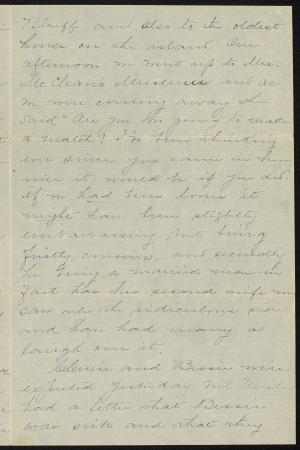 Bluff and also to the oldest
house on the island. One
afternoon we went up to Mrs.
McClean's Museum and as
we were coming away she
said "Are you two going to make
a match? I've been thinking
ever since you came in how
nice it would be if you did."
If we had been beaus it
might have been slightly
embarrassing, but being
firstly, cousins, and secondly
he being a married man - in
fact has his second wife we
saw only the ridiculous side
and have had many a
laugh over it.
Clarence and Bessie were
expected yesterday but
had a letter that Bessie
was sick and that they